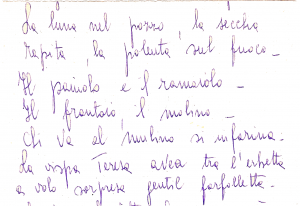 La luna nel pozzo, la secchia
rapita, la polenta sul fuoco -
Il paiolo e il ramaiolo -
Il frantoio, il molino -
Chi va al mulino si infarina -
La vispa Teresa avea tra l'erbetta
a volo sorpresa gentil farfalletta -